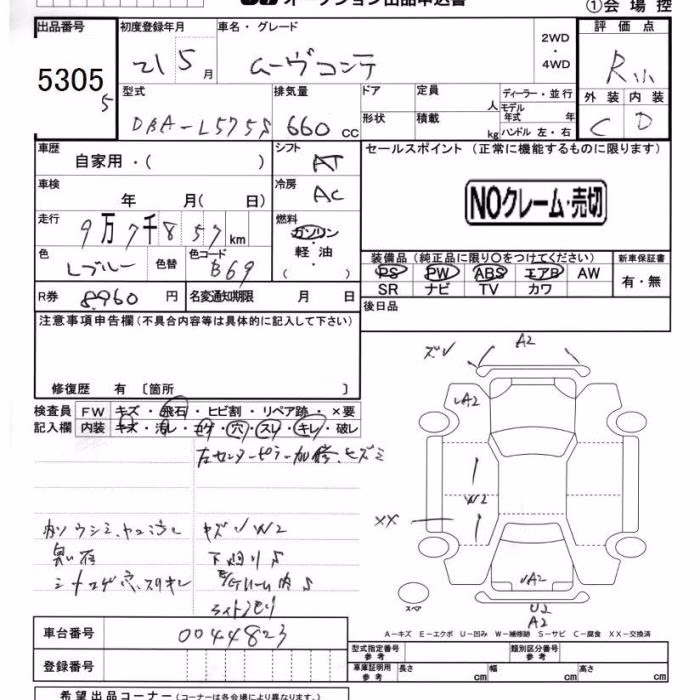 オークション出品申込書
①会場控
出品番号
初度登録年月
車名・グレード
2WD
・
4WD
評価点
5305
5
21 5 月
ムーヴコンテ
R
外装 内装
C D
型式
排気量
ドア
定員
人
ディーラー・並行
モデル年式 年
DBA-L575S
660 cc
形状
積載
kg
ハンドル 左・右
車歴
自家用・( )
シフト
AT
セールスポイント (正常に機能するものに限ります)
車検
年 月( 日)
冷房
AC
NOクレーム・売切
走行
9万7千857 km
燃料
ガソリン
・
軽油
( )
色
Lブルー
色替
色コード
B69
装備品 (純正品に限り〇をつけてください)
新車保証書
PS PW ABS エアB AW
有・無
SR ナビ TV カワ
R券
8960 円
名変通知期限 月 日
後日品
注意事項申告欄 (不具合内容等は具体的に記入して下さい)
修復歴 有 〔箇所 〕
検査員
記入欄
FW キズ・飛石・ヒビ割・リペア跡・×要
内装 キズ・汚レ・コゲ・穴・スレ・キレ・破レ
左センターピラー加修、ヒズミ
キズ
A2
A2
W2
XX
A2
U2
A2
スペア
W2
下廻りS
ルーム内S
A-キズ E-エクボ U-凹み W-補修跡 S-サビ C-腐食 XX-交換済
車台番号
0044823
型式指定番号
参考
類別区分番号
参考
登録番号
車庫証明用
参考
長さ cm
幅 cm
高さ cm
希望出品コーナー (コーナーは各会場により異なります。)